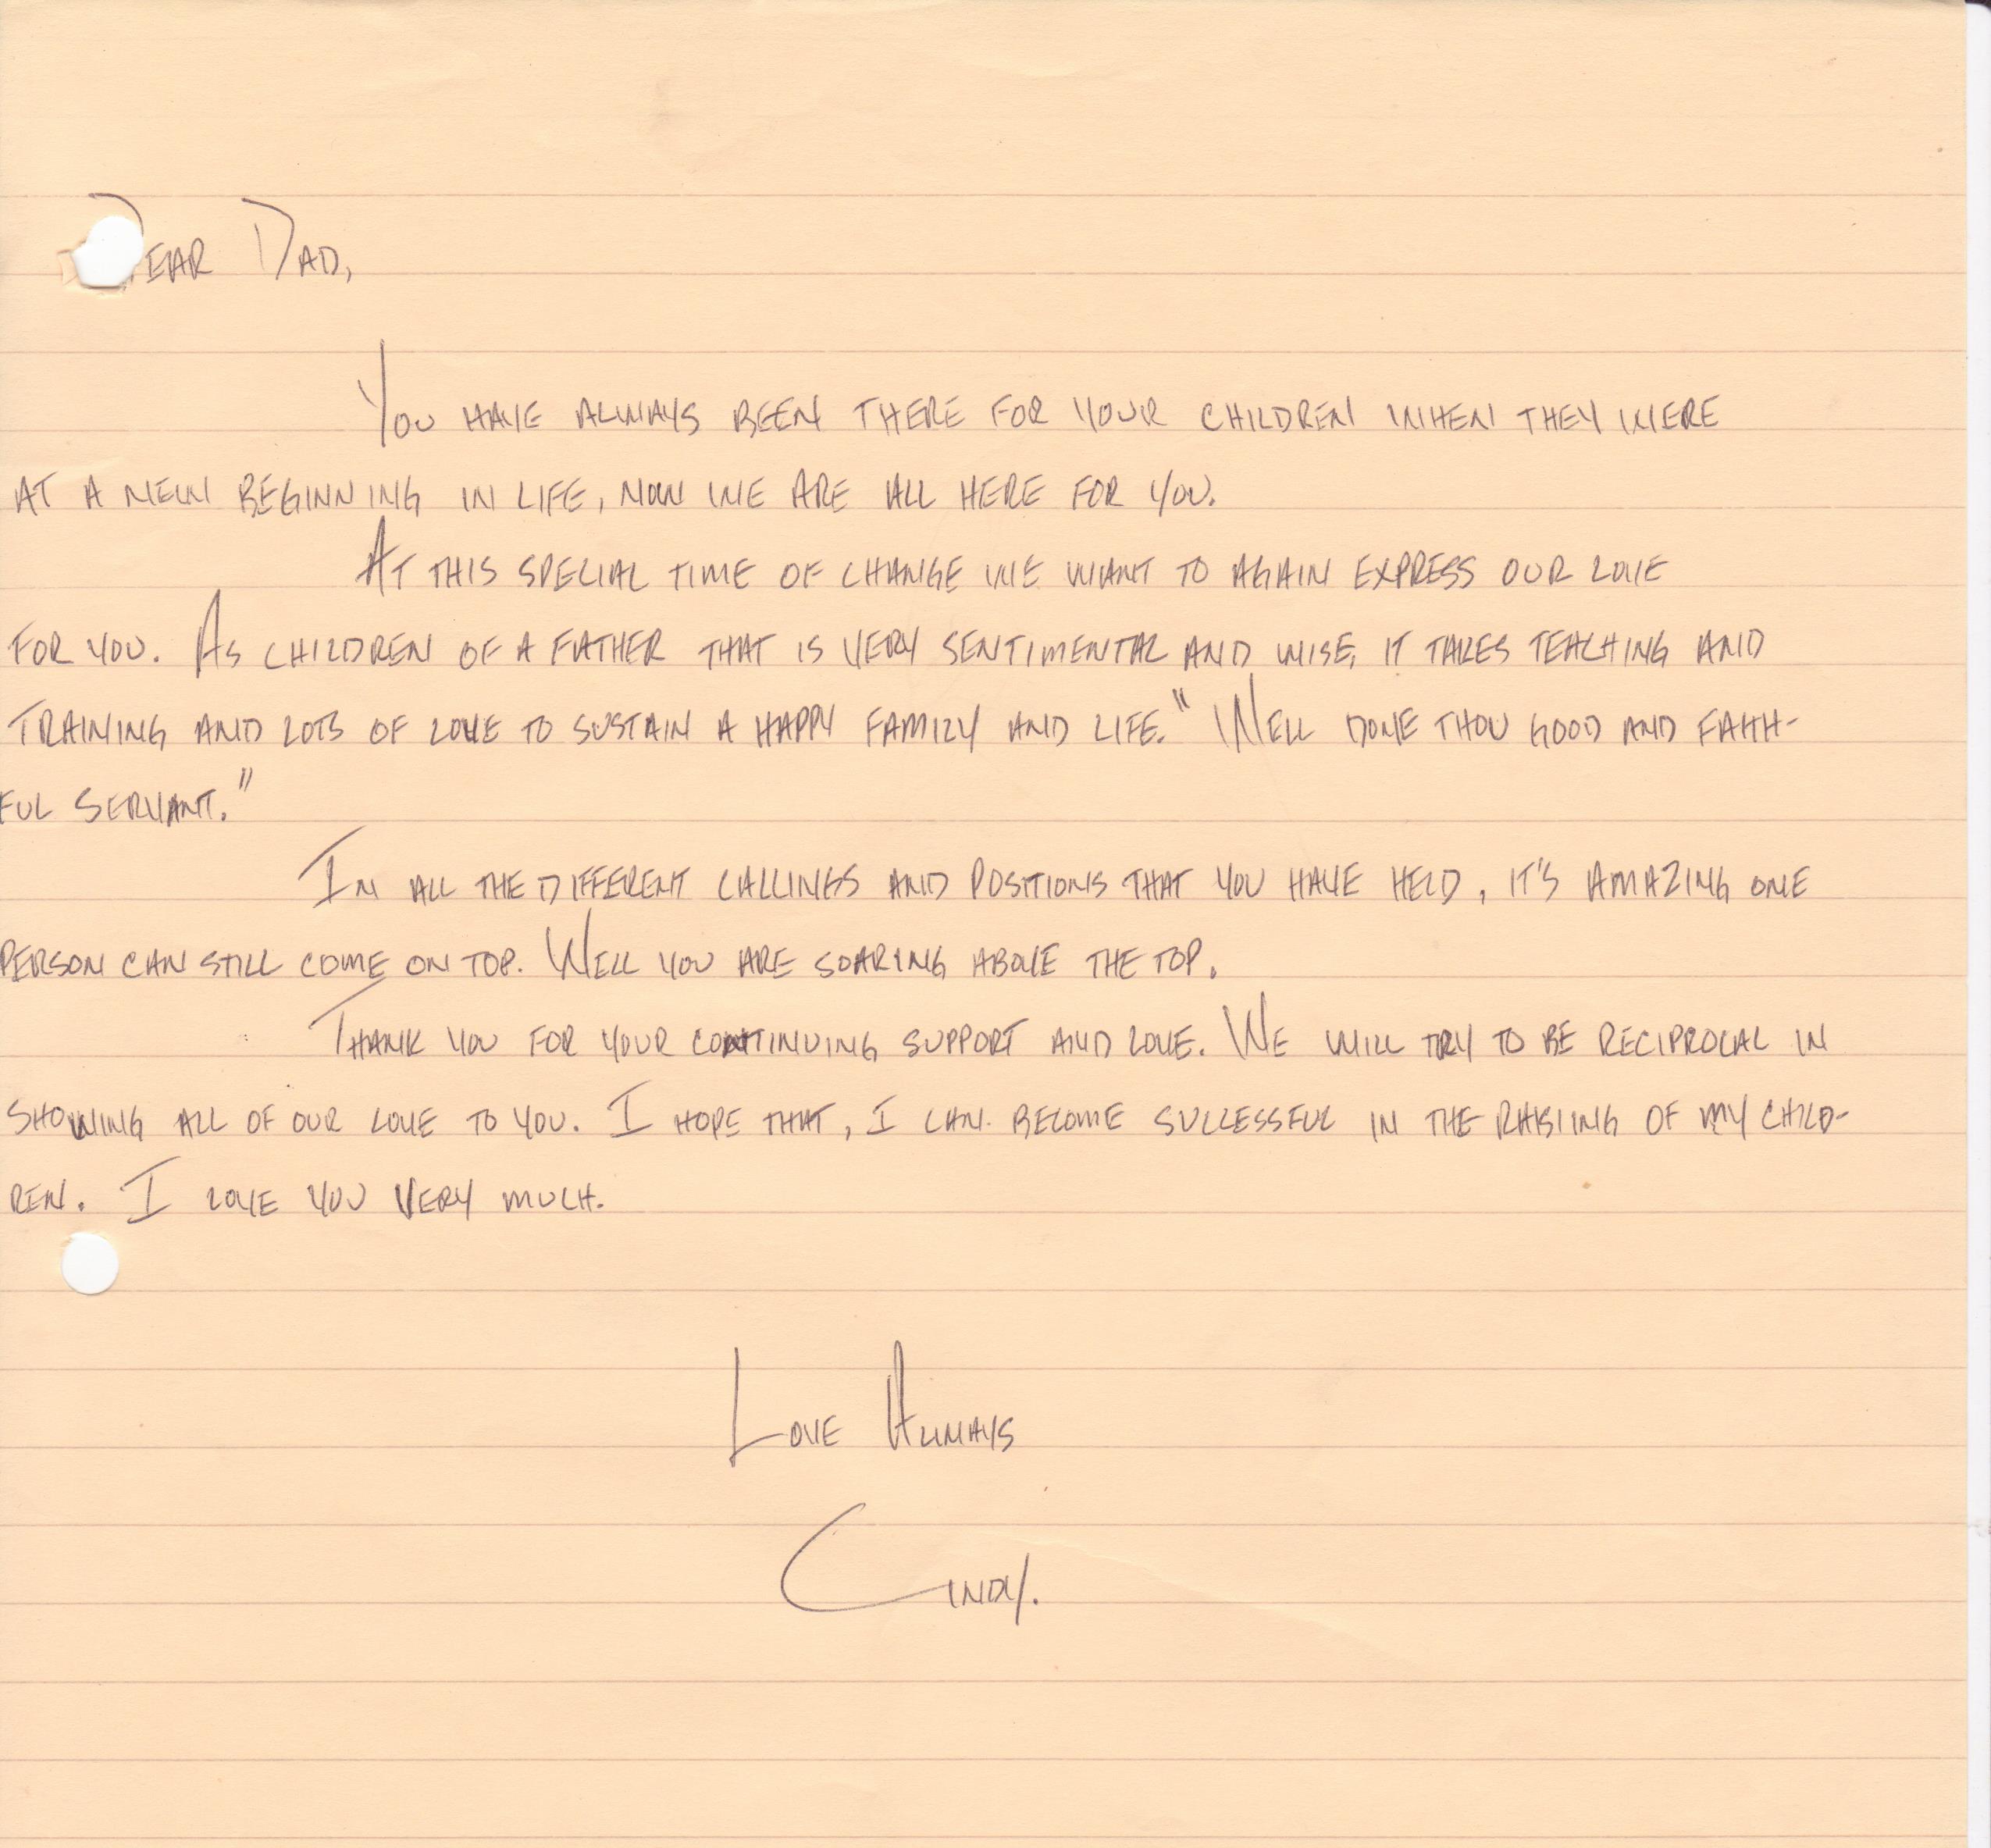 DEAR DAD,
YOU HAVE ALWAYS BEEN THERE FOR YOUR CHILDREN WHEN THEY WERE
AT A NEW BEGINNING IN LIFE, NOW WE ARE ALL HERE FOR YOU.
AT THIS SPECIAL TIME OF CHANGE WE WANT TO AGAIN EXPRESS OUR LOVE
FOR YOU. AS CHILDREN OF A FATHER THAT IS VERY SENTIMENTAL AND WISE, IT TAKES TEACHING AND
TRAINING AND LOTS OF LOVE TO SUSTAIN A HAPPY FAMILY AND LIFE. "WELL DONE THOU GOOD AND FAITH-
FUL SERVANT."
IN ALL THE DIFFERENT CALLINGS AND POSITIONS THAT YOU HAVE HELD, IT'S AMAZING ONE
PERSON CAN STILL COME ON TOP. WELL YOU ARE SOARING ABOVE THE TOP.
THANK YOU FOR YOUR CONTINUING SUPPORT AND LOVE. WE WILL TRY TO BE RECIPROCAL IN
SHOWING ALL OF OUR LOVE TO YOU. I HOPE THAT, I CAN BECOME SUCCESSFUL IN THE RAISING OF MY CHILD-
REN. I LOVE YOU VERY MUCH.
LOVE ALWAYS
CINDY.